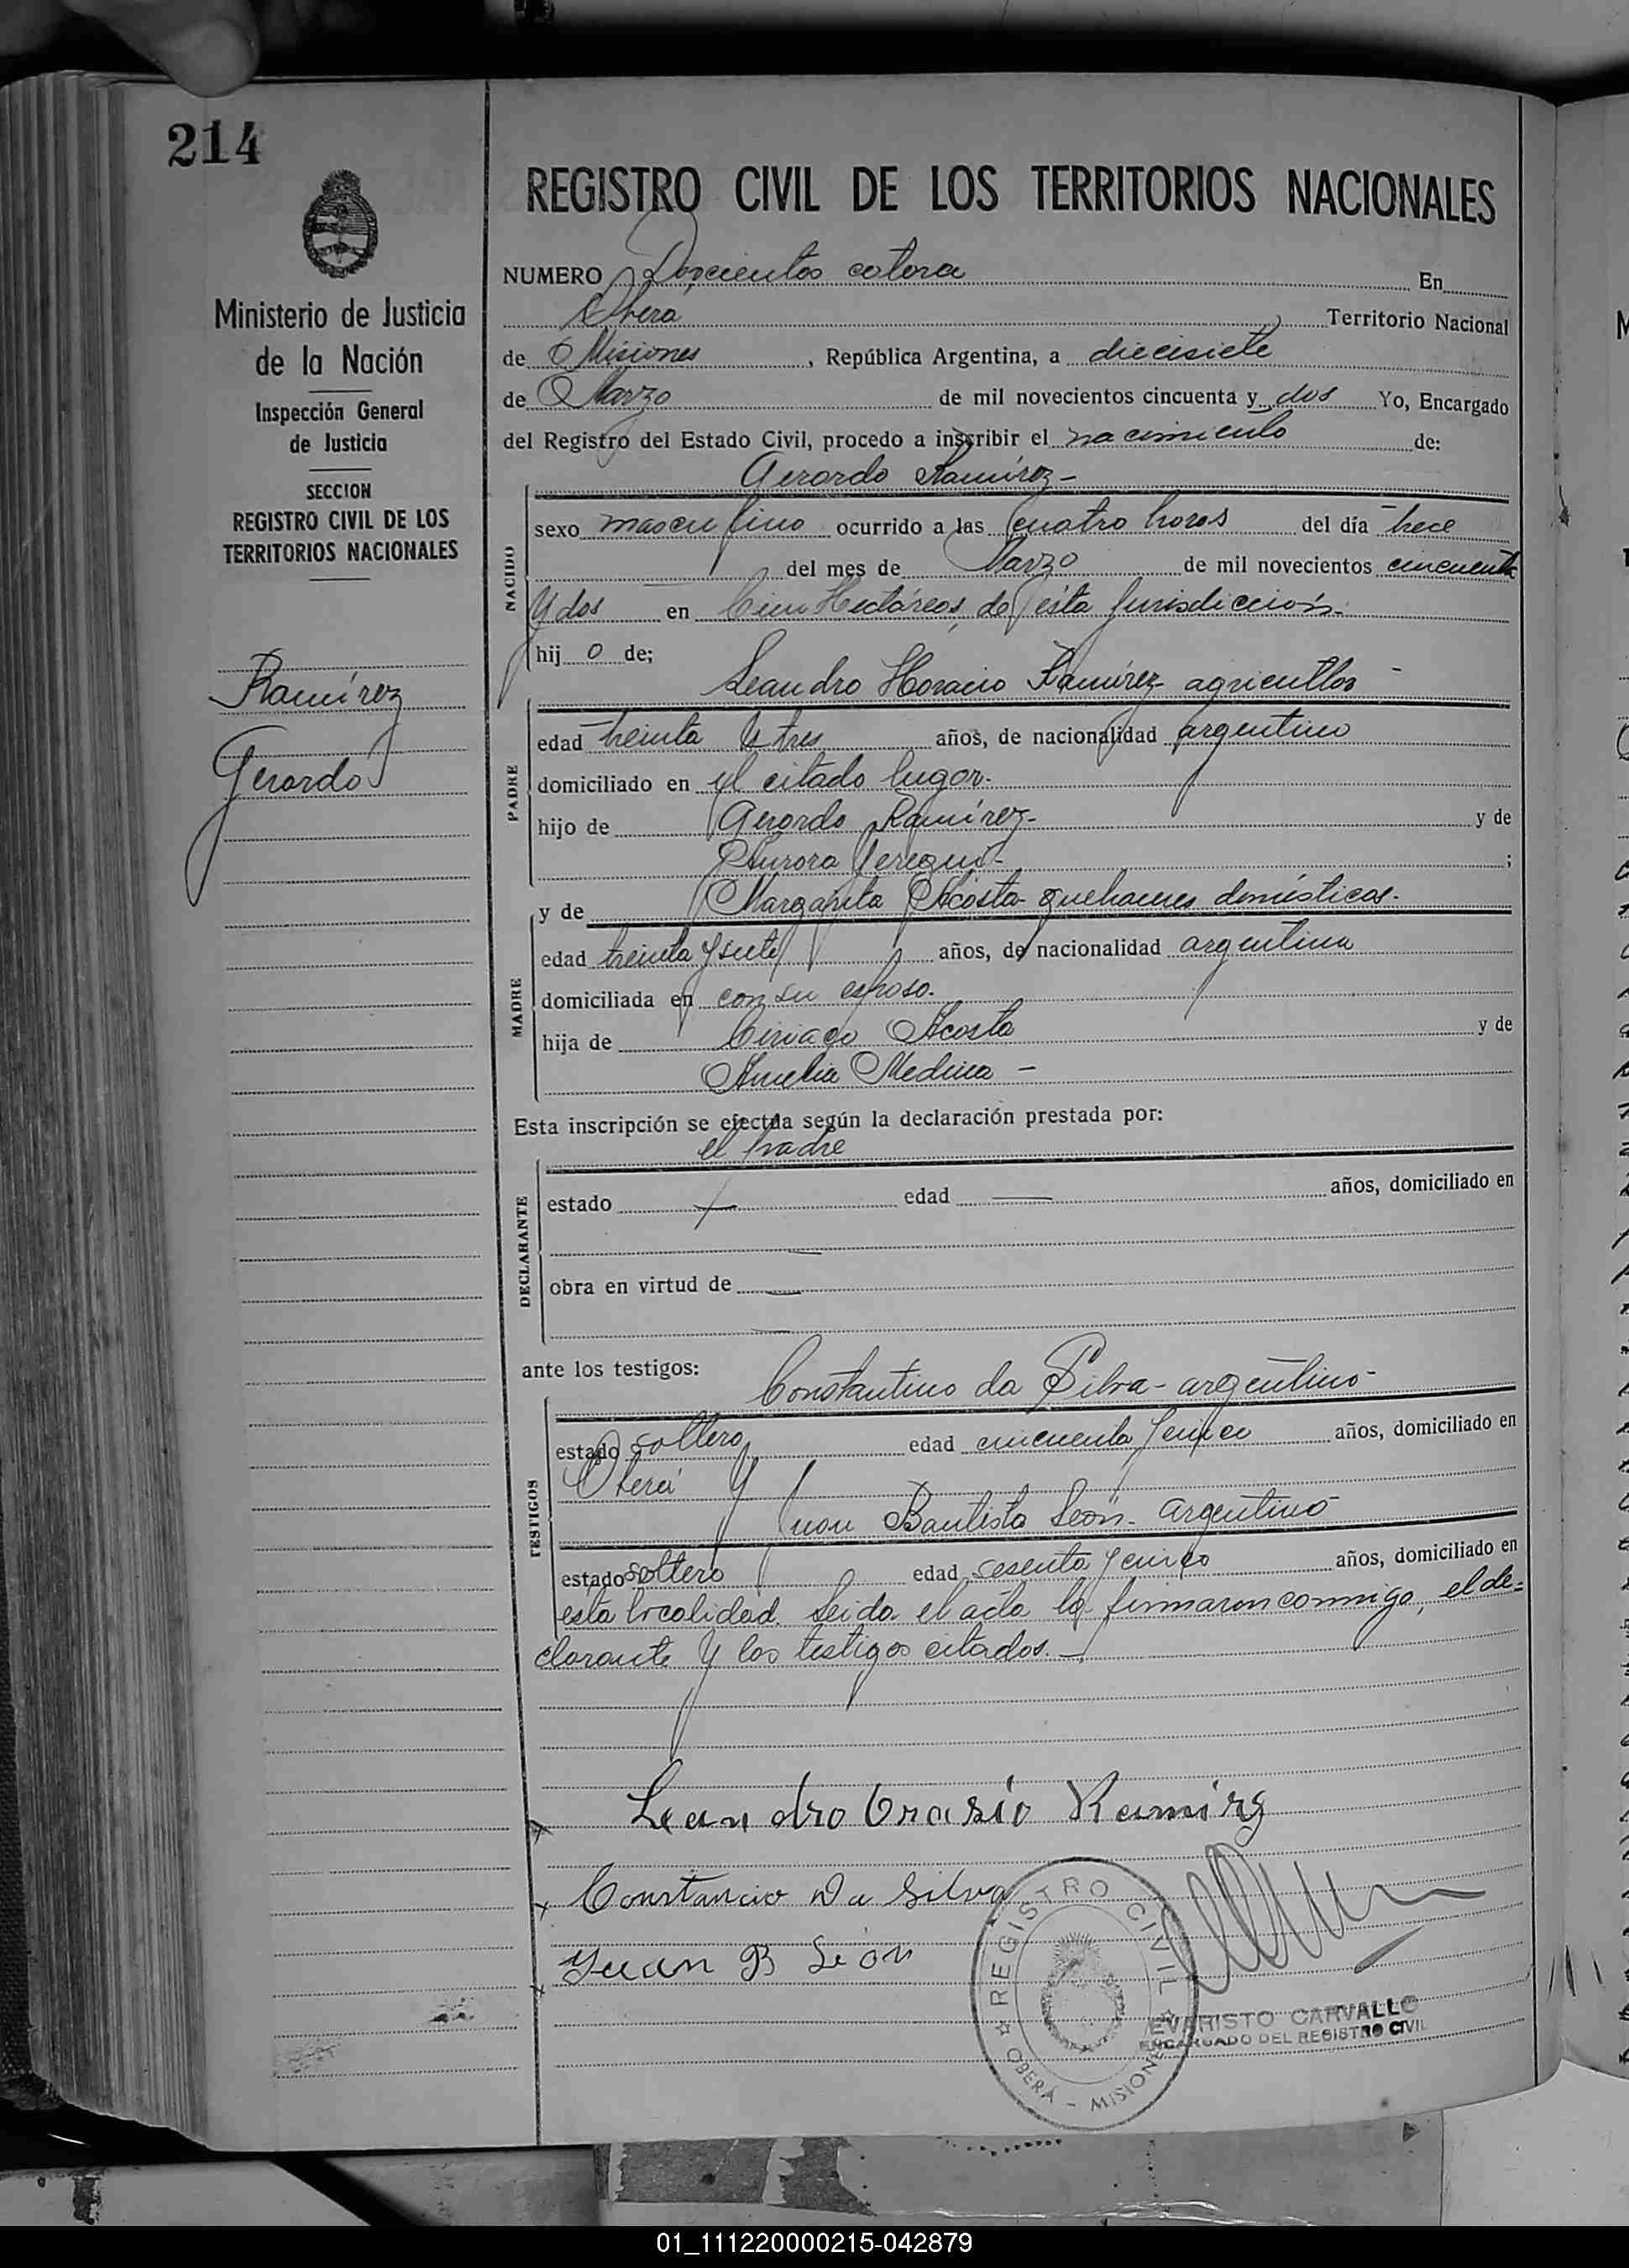 214
Ministerio de Justicia
de la Nación
Inspección General
de Justicia
SECCION
REGISTRO CIVIL DE LOS
TERRITORIOS NACIONALES
Ramírez
Gerardo
REGISTRO CIVIL DE LOS TERRITORIOS NACIONALES
NUMERO Doscientos catorce En
Oberá Territorio Nacional
de Misiones, República Argentina, a diecisiete
de Marzo de mil novecientos cincuenta y dos Yo, Encargado
del Registro del Estado Civil, procedo a inscribir el nacimiento de:
Gerardo Ramírez -
NACIDO
sexo masculino ocurrido a las cuatro horas del día trece
del mes de Marzo de mil novecientos cincuenta
y dos en Cien Hectáreas, de esta Jurisdicción.
hij o de;
Leandro Horacio Ramírez - agricultor -
PADRE
edad treinta y tres años, de nacionalidad argentino
domiciliado en el citado lugar.
hijo de Gerardo Ramírez - y de
Aurora ;
y de Margarita Acosta - quehaceres domésticos.
MADRE
edad treinta y siete años, de nacionalidad argentina
domiciliada en con su esposo.
hija de Ciriaco Acosta y de
Amelia Medina -
Esta inscripción se efectúa según la declaración prestada por:
el padre
DECLARANTE
estado edad años, domiciliado en
obra en virtud de
ante los testigos:
Constantino da Silva - argentino -
TESTIGOS
estado soltero edad cincuenta y cinco años, domiciliado en
Oberá y
Juan Bautista León - argentino
estado soltero edad sesenta y cinco años, domiciliado en
esta localidad. Leida el acta la firmaron conmigo, el de=
clarante y los testigos citados. -
Leandro Orasio Ramirez
Constancio Da Silva
Juan B León
REGISTRO CIVIL
OBERÁ - MISIONES
EVARISTO CARVALLO
ENCARGADO DEL REGISTRO CIVIL
01_111220000215-042879